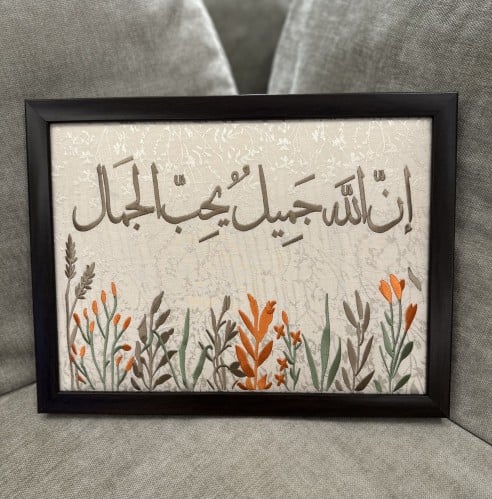 إنّ اللّه جَمِيلٌ يُحِبّ الجَمَال